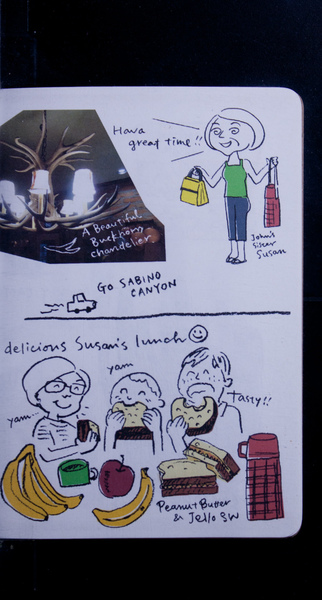 Have a
great time!!
A Beautiful
Buckhorn
chandelier
John's
Sister
Susan
GO SABINO
CANYON
delicious Susan's lunch
yam
Tasty!!
yam...
Peanut Butter
& Jello SW